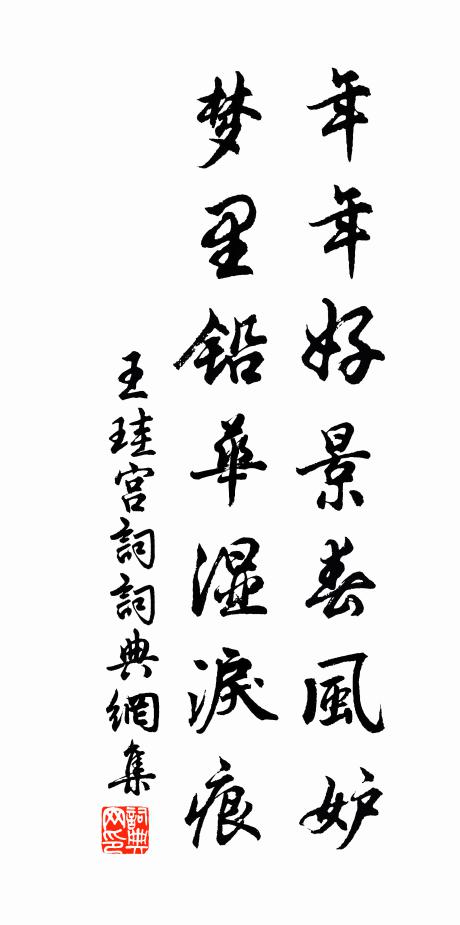 年年好景春風妒
梦里鉛華濕淚痕
王珪宫詞詞典網集
詞典网印